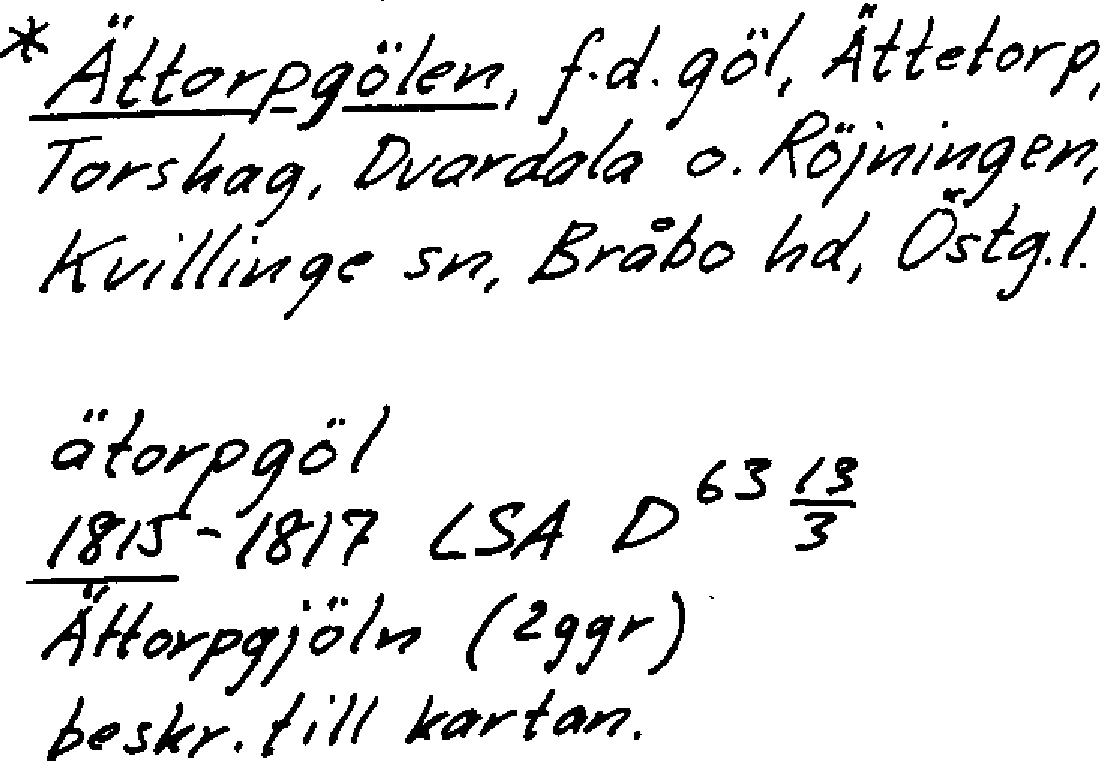 * Ättorpgölen, f.d. göl, Ättetorp,
Torshag, Dvardala o. Röjningen,
Kvillinge sn, Bråbo hd, Östg.l.
ätorpgöl
1815-1817 LSA D 63 13/3
Ättorpgjöln (2ggr)
beskr. till kartan.